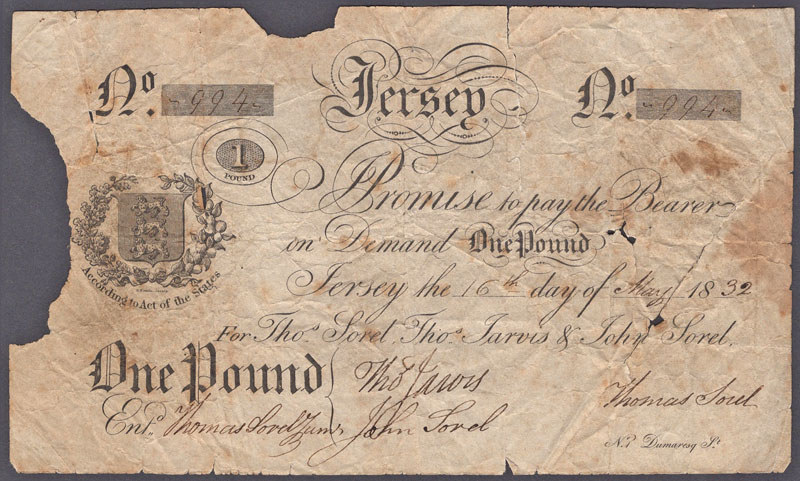 No. 994 Jersey No. 994
1
POUND
I Promise to pay the Bearer
on Demand One Pound
Jersey the 16th day of May 1832
According to Act of the States
For Thos. Sorel, Thos. Jarvis & John Sorel.
One Pound Thos Jarvis Thomas Sorel
Entd. Thomas Sorel Junr John Sorel
Dumaresq St.